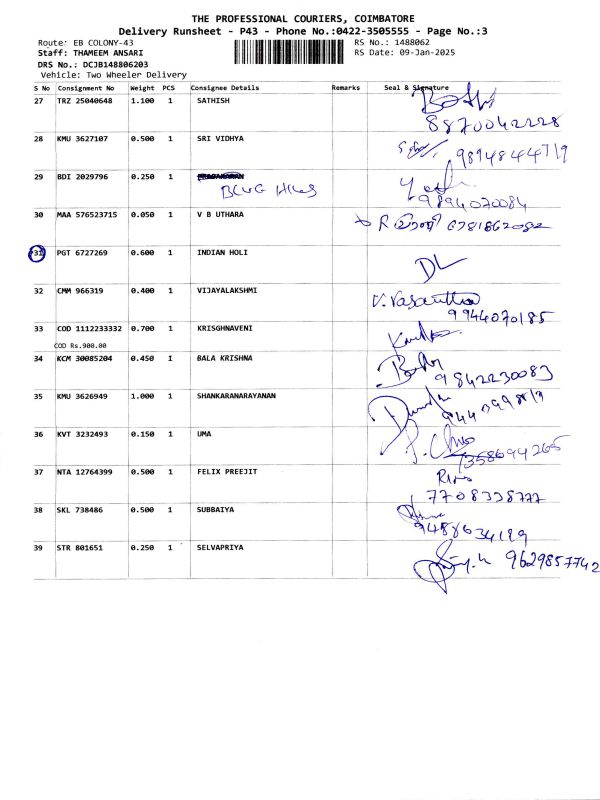 THE PROFESSIONAL COURIERS, COIMBATORE
Delivery Runsheet - P43 - Phone No.:0422-3505555 - Page No.:3
Route: EB COLONY-43 RS No.: 1488062
Staff: THAMEEM ANSARI RS Date: 09-Jan-2025
DRS No.: DCJB148806203
Vehicle: Two Wheeler Delivery
S No Consignment No Weight PCS Consignee Details Remarks Seal & Signature
27 TRZ 25040648 1.100 1 SATHISH
8870042228
28 KMU 3627107 0.500 1 SRI VIDHYA
9894844719
29 BDI 2029796 0.250 1
BLUE HILLS
9894070084
30 MAA 576523715 0.050 1 V B UTHARA
31 PGT 6727269 0.600 1 INDIAN HOLI
DL
32 CMM 966319 0.400 1 VIJAYALAKSHMI V. Vasantha
9944070185
33 COD 1112233332 0.700 1 KRISGHNAVENI
COD Rs.900.00
34 KCM 30085204 0.450 1 BALA KRISHNA
9842230083
35 KMU 3626949 1.000 1 SHANKARANARAYANAN
36 KVT 3232493 0.150 1 UMA
7358694265
37 NTA 12764399 0.500 1 FELIX PREEJIT
7708338777
38 SKL 738486 0.500 1 SUBBAIYA
9488634199
39 STR 801651 0.250 1 SELVAPRIYA 9629857742